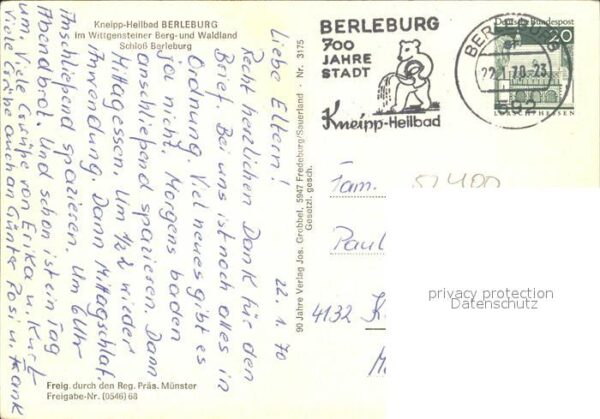 Kneipp-Heilbad BERLEBURG
im Wittgensteiner Berg- und Waldland
Schloß Berleburg
22.1.70
Liebe Eltern!
Recht herzlichen Dank für den
Brief. Bei uns ist noch alles in
Ordnung. Viel neues gibt es
ja nicht. Morgens baden
anschließend spazieren. Dann
Mittagessen. Um 1/2 2 wieder
Anwendung. Dann Mittagschlaf.
Anschließend spazieren. Um 6 Uhr
Abendbrot. Und schon ist ein Tag
um. Viele Grüße von Erika u. Kurt
Viele Grüße auch an Günter Rosi u. Frank
Freig. durch den Reg. Präs. Münster
Freigabe-Nr. (0546) 68
90 Jahre Verlag Jos. Grobbel, 5947 Fredeburg/Sauerland · Nr. 3175
Gesetzl. gesch.
BERLEBURG
700
JAHRE
STADT
Kneipp-Heilbad
BERLEBURG
22.1.70-23
592
Deutsche Bundespost
20
LORSCH/HESSEN
Fam.
Paul
4132 K
privacy protection
Datenschutz